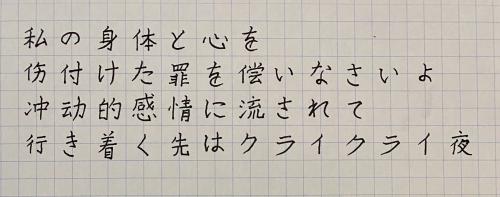 私の身体と心を
伤付けた罪を償いなさいよ
冲动的感情に流されて
行き着く先はクライクライ夜